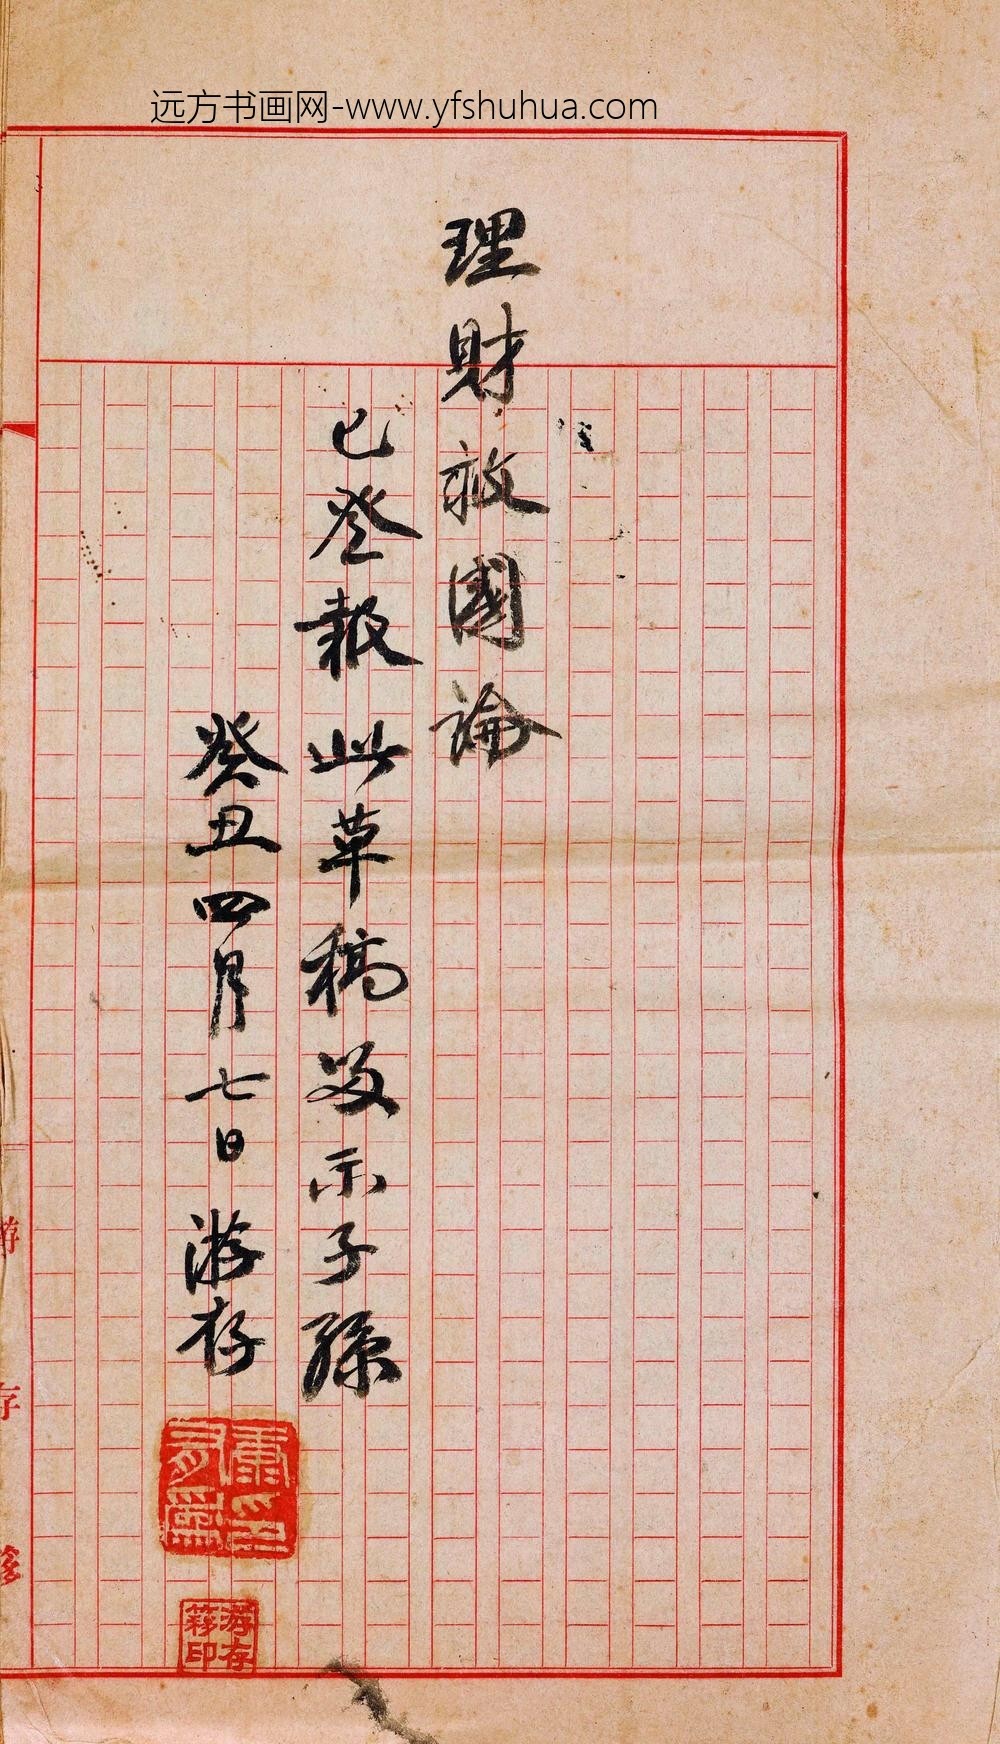 远方书画网-www.yfshuhua.com
理財救國論
已登報此草稿留示子孫
癸丑四月七日游存
康有為印
游存簃印
游存簃